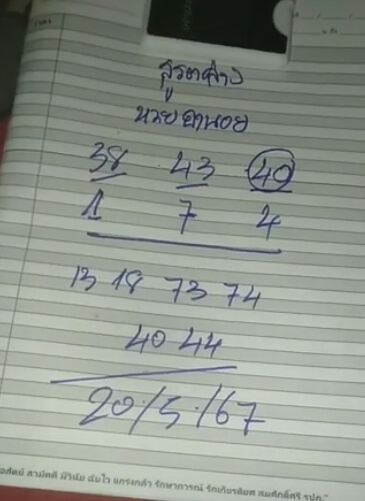 สูตรล่าง
หวยฮานอย
38 43 40
1 7 4
13 18 73 74
40 44
20/5/67
อสัตย์ สามัคคี มีวินัย ฉับไว แกร่งกล้า รักษาการณ์ รักเกียรติยศ สมศักดิ์ศรี รปภ."